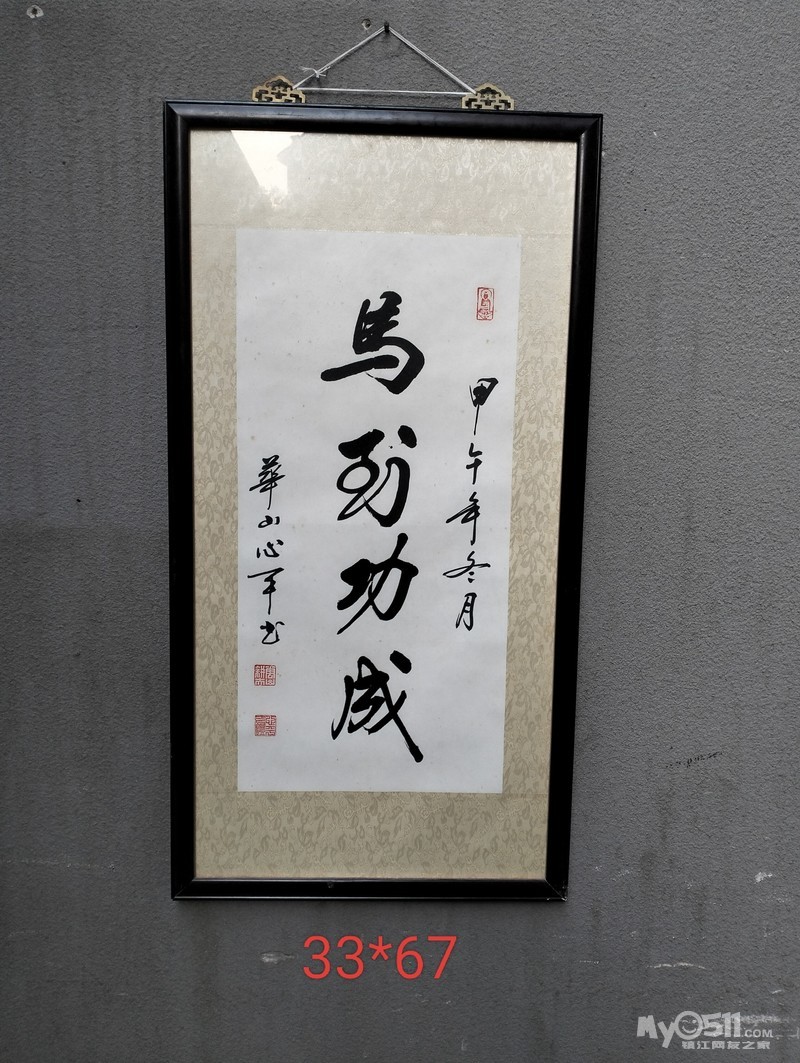 甲午年冬月
馬到功成
華山心平书
33*67
MyO511.COM
镇江网友之家